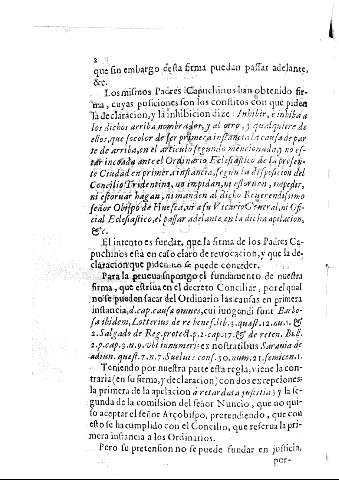 2
que sin embargo desta firma puedan passar adelante,
&c.
Los mismos Padres Capuchinos han obtenido fir-
ma, cuyas posiciones son los conflitos con que piden
la declaracion, y la inhibicion dize: Inhibir, e inhiba a
los dichos arriba nombrados, y al otro, y qualquiere de
ellos, que so color de ser primera instancia la causa de par-
te de arriba, en el articulo segundo mencionada, y no es-
tar incoada ante el Ordinario Eclesiastico de la presen-
te Ciudad en primera instancia, segun la disposicion del
Concilio Tridentino, no impidan, ni estorven, impedir,
ni estoruar hagan, ni manden al dicho Reverendissimo
señor Obispo de Huesca, ni a su Vicario General, ni Ofi-
cial Eclesiastico, el passar adelante en la dicha apelacion,
&c.
El intento es fundar, que la firma de los Padres Ca-
puchinos està en caso claro de reuocacion, y que la de-
claracion que piden no se puede conceder.
Para la prueua supongo el fundamento de nuestra
firma, que estriua en el decreto Conciliar, por el qual
no se pueden sacar del Ordinario las causas en primera
instancia, d. cap. causæ omnes, cui iungendi sunt Barbo-
sa ibidem, Lotterius de re benef. lib. 3. quæst. 12. nu. 3. &
2. Salgado de Reg. protect. p. 2. cap. 17. & de reten. Bull.
2. p. cap. 3. n. 9. vbi innumeri: ex nostratibus Sarauia de
adiun. quæst. 7. n. 7. Suelues conf. 50. num. 21. semicen. 1.
Teniendo por nuestra parte esta regla, viene la con-
traria (en su firma, y declaracion) con dos excepciones:
la primera de la apelacion à retardata justitia; y la se-
gunda de la comission del señor Nuncio, que no qui-
so aceptar el señor Arçobispo, pretendiendo, que con
esto se ha cumplido con el Concilio, que reserua la pri-
mera instancia a los Ordinarios.
Pero su pretension no se puede fundar en justicia,
por-